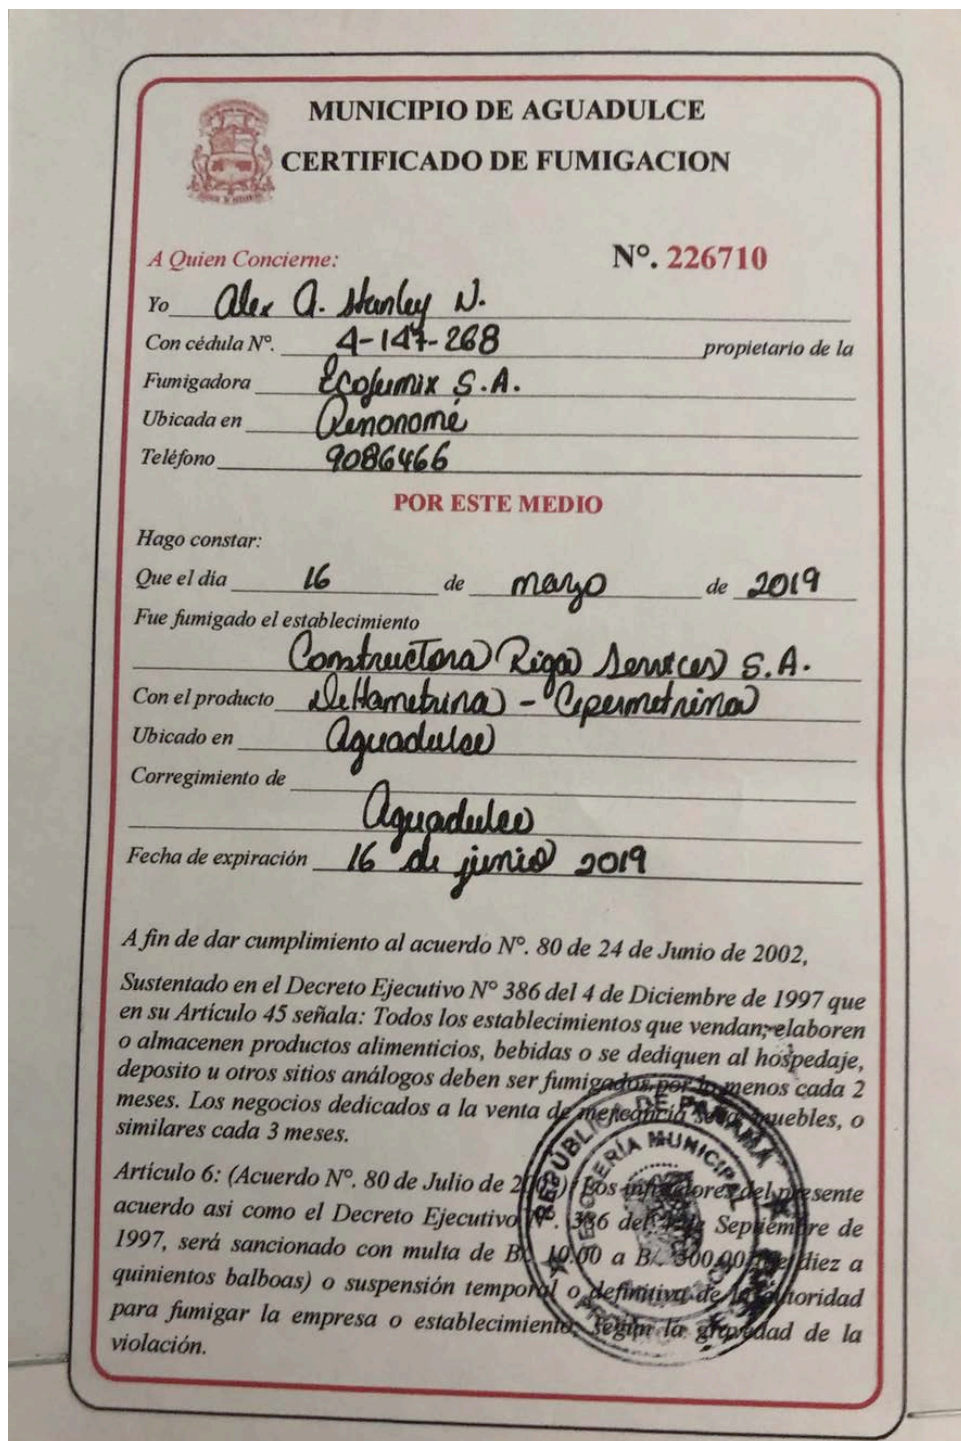 MUNICIPIO DE AGUADULCE
CERTIFICADO DE FUMIGACION
A Quien Concierne: Nº. 226710
Yo Alex A. Stanley N.
Con cédula Nº. 4-147-268 propietario de la
Fumigadora Ecofumix S.A.
Ubicada en Penonomé
Teléfono 9086466
POR ESTE MEDIO
Hago constar:
Que el día 16 de marzo de 2019
Fue fumigado el establecimiento
Constructora Riga Services S.A.
Con el producto Deltametrina - Cipermetrina
Ubicado en Aguadulce
Corregimiento de
Aguadulce
Fecha de expiración 16 de junio 2019
A fin de dar cumplimiento al acuerdo Nº. 80 de 24 de Junio de 2002,
Sustentado en el Decreto Ejecutivo Nº 386 del 4 de Diciembre de 1997 que
en su Artículo 45 señala: Todos los establecimientos que vendan, elaboren
o almacenen productos alimenticios, bebidas o se dediquen al hospedaje,
deposito u otros sitios análogos deben ser fumigados por lo menos cada 2
meses. Los negocios dedicados a la venta de mercancía seca, muebles, o
similares cada 3 meses.
Artículo 6: (Acuerdo Nº. 80 de Julio de Los infractores del presente
acuerdo asi como el Decreto Ejecutivo Nº. 386 del 4 de Septiembre de
1997, será sancionado con multa de B/. 10.00 a B/. 500.00 diez a
quinientos balboas) o suspensión temporal o definitiva de la autoridad
para fumigar la empresa o establecimiento, según la gravedad de la
violación.
REPÚBLICA DE PANAMÁ
MUNICIPAL